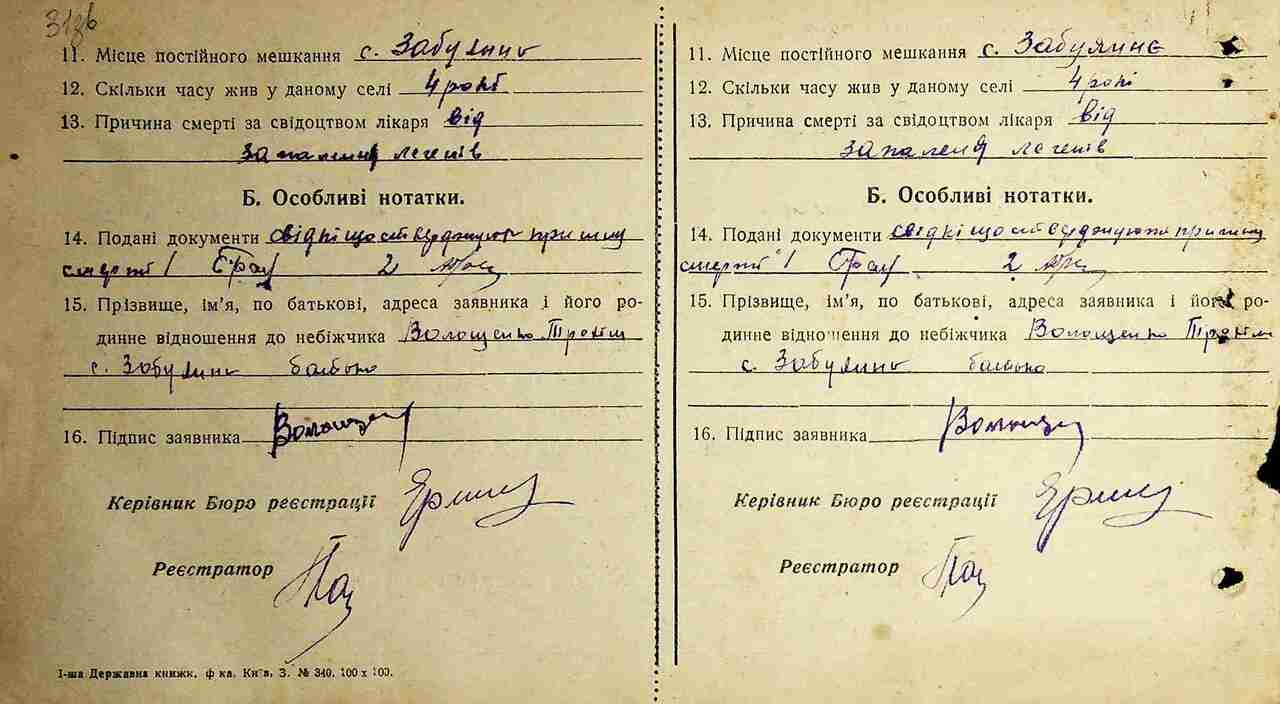 313в
11. Місце постійного мешкання с. Забуяння
12. Скільки часу жив у даному селі 4 роки
13. Причина смерті за свідоцтвом лікаря від
запалення легенів
Б. Особливі нотатки.
14. Подані документи свідкі що стверджують причину
смерті / 2
15. Прізвище, ім'я, по батькові, адреса заявника і його ро-
динне відношення до небіжчика Волощенко Трохим
с. Забуяння батько
16. Підпис заявника Волощен
Керівник Бюро реєстрації
Реєстратор
І-ша Державна книжк. ф-ка, Київ, З. № 340. 100 х 100.
11. Місце постійного мешкання с. Забуяннє
12. Скільки часу жив у даному селі 4 роки
13. Причина смерті за свідоцтвом лікаря від
запаленя легенів
Б. Особливі нотатки.
14. Подані документи свідкі що стверджують причину
смерті / 2
15. Прізвище, ім'я, по батькові, адреса заявника і його ро-
динне відношення до небіжчика Волощенко Трохим
с. Забуяння батько
16. Підпис заявника Волощен
Керівник Бюро реєстрації
Реєстратор